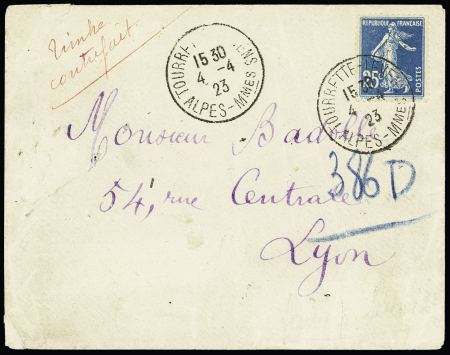 Timbre
contrefait.
TOURRETTE-LEVENS
15 30
4 -4
23
ALPES-MMES
REPUBLIQUE FRANÇAISE
25c
POSTES
TOURRETTE-LEVENS
15 30
4 -4
23
ALPES-MMES
Monsieur
54, rue Centrale
386 D
Lyon